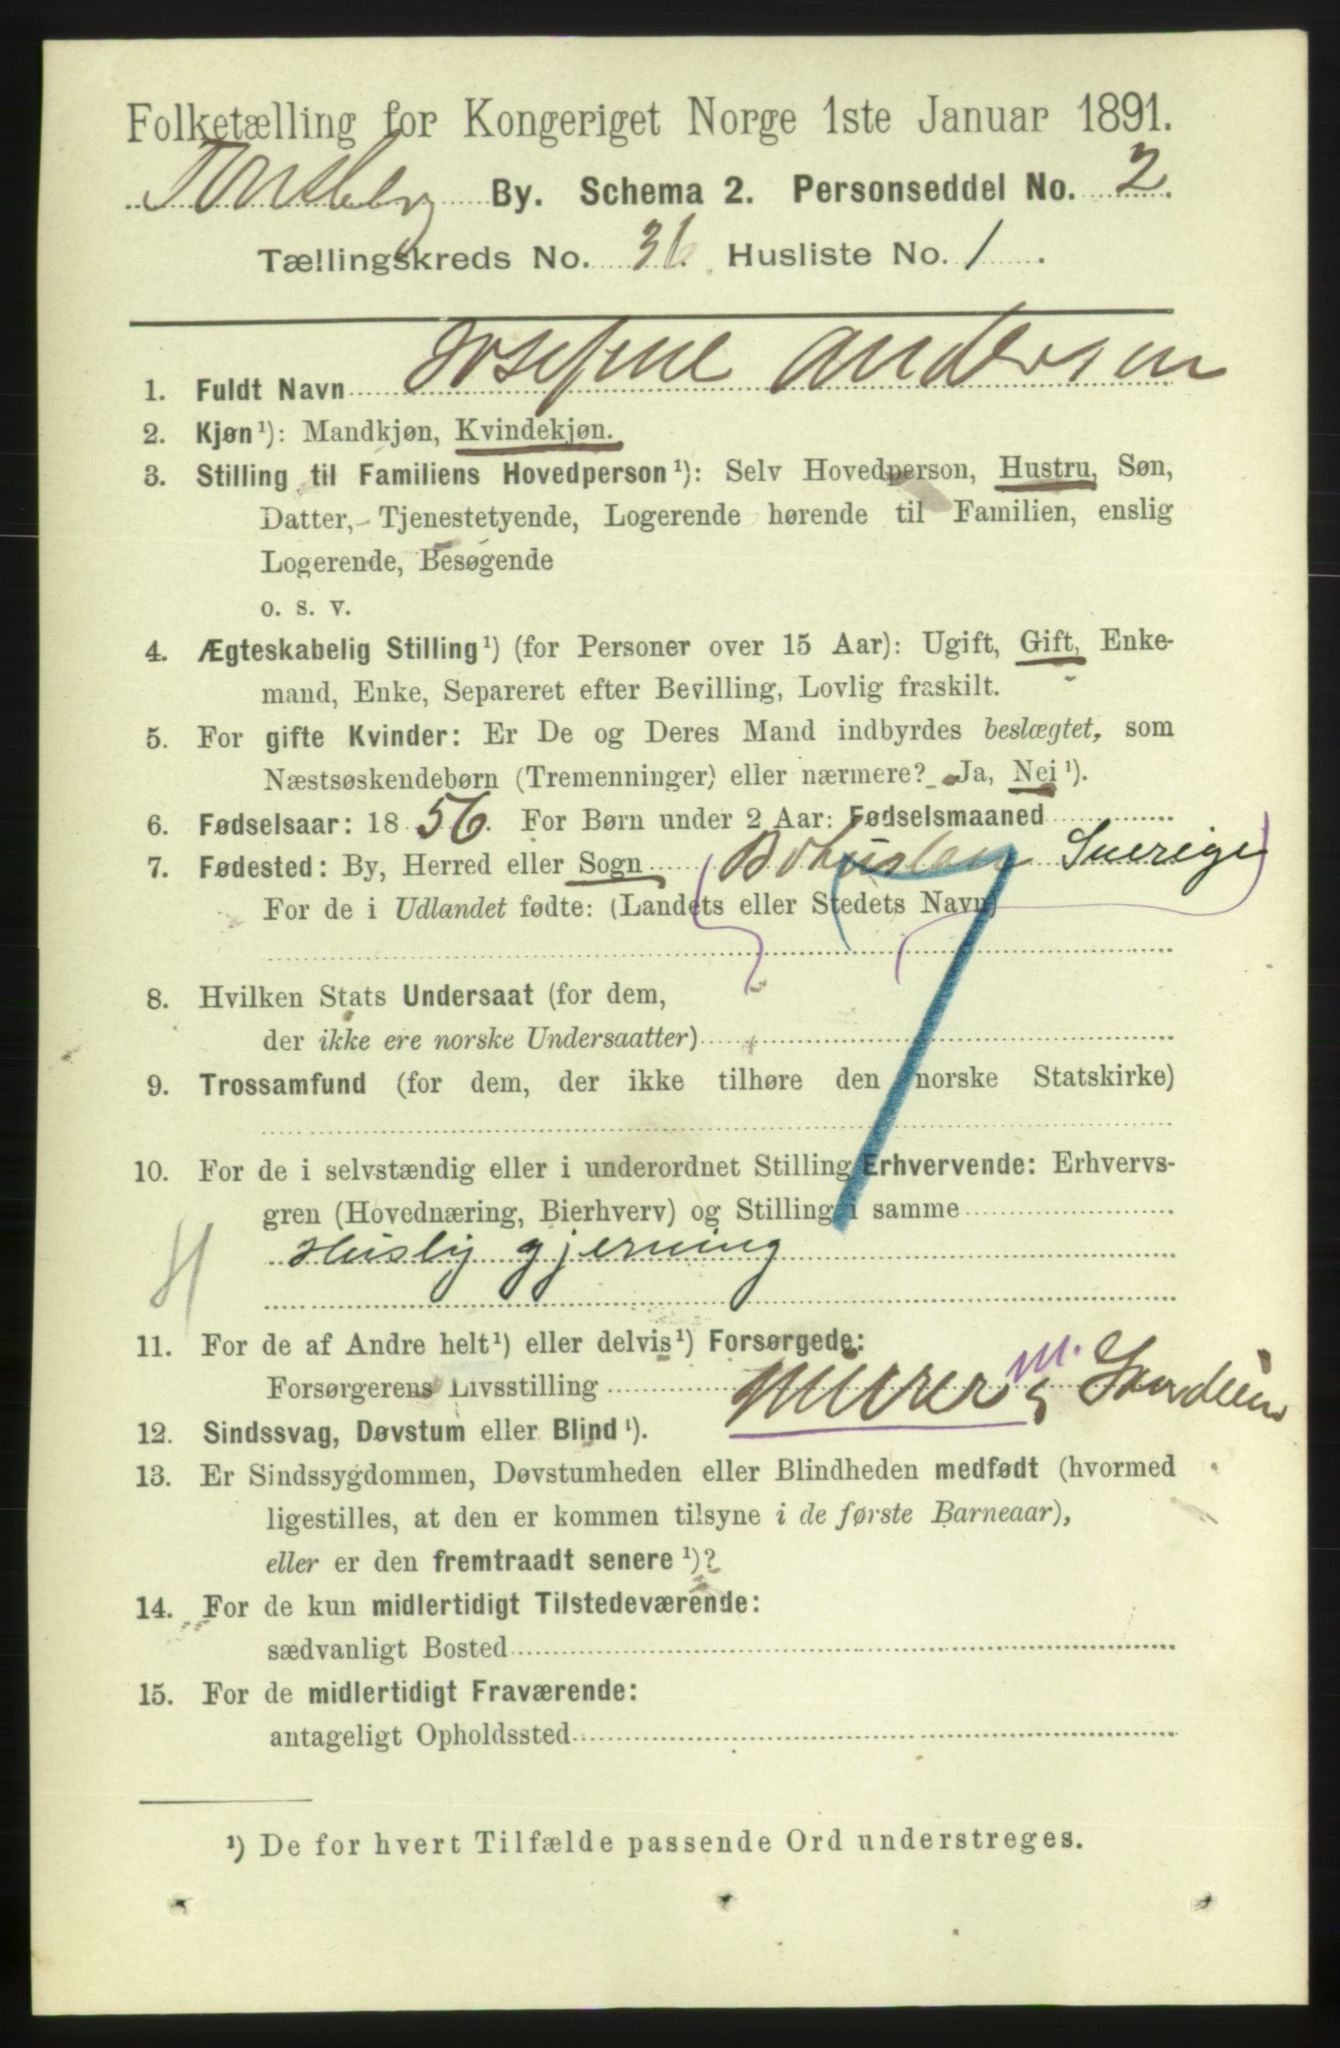 Folketælling for Kongeriget Norge 1ste Januar 1891.
Tønsberg By. Schema 2. Personseddel No. 2.
Tællingskreds No. 36. Husliste No. 1.
1. Fuldt Navn Josefine Andersen
2. Kjøn¹): Mandkjøn, Kvindekjøn.
3. Stilling til Familiens Hovedperson¹): Selv Hovedperson, Hustru, Søn,
Datter, Tjenestetyende, Logerende hørende til Familien, enslig
Logerende, Besøgende
o. s. v.
4. Ægteskabelig Stilling¹) (for Personer over 15 Aar): Ugift, Gift, Enke-
mand, Enke, Separeret efter Bevilling, Lovlig fraskilt.
5. For gifte Kvinder: Er De og Deres Mand indbyrdes beslægtet, som
Næstsøskendebørn (Tremenninger) eller nærmere? Ja, Nei¹).
6. Fødselsaar: 1856. For Børn under 2 Aar: Fødselsmaaned
7. Fødested: By, Herred eller Sogn Bohuslen Sverige
For de i Udlandet fødte: (Landets eller Stedets Navn)
8. Hvilken Stats Undersaat (for dem,
der ikke ere norske Undersaatter)
9. Trossamfund (for dem, der ikke tilhøre den norske Statskirke)
10. For de i selvstændig eller i underordnet Stilling Erhvervende: Erhvervs-
gren (Hovednæring, Bierhverv) og Stilling i samme
H Huslig gjerning
11. For de af Andre helt¹) eller delvis¹) Forsørgede:
Forsørgerens Livsstilling Murer m.
12. Sindssvag, Døvstum eller Blind¹).
13. Er Sindssygdommen, Døvstumheden eller Blindheden medfødt (hvormed
ligestilles, at den er kommen tilsyne i de første Barneaar),
eller er den fremtraadt senere¹)?
14. For de kun midlertidigt Tilstedeværende:
sædvanligt Bosted
15. For de midlertidigt Fraværende:
antageligt Opholdssted
¹) De for hvert Tilfælde passende Ord understreges.